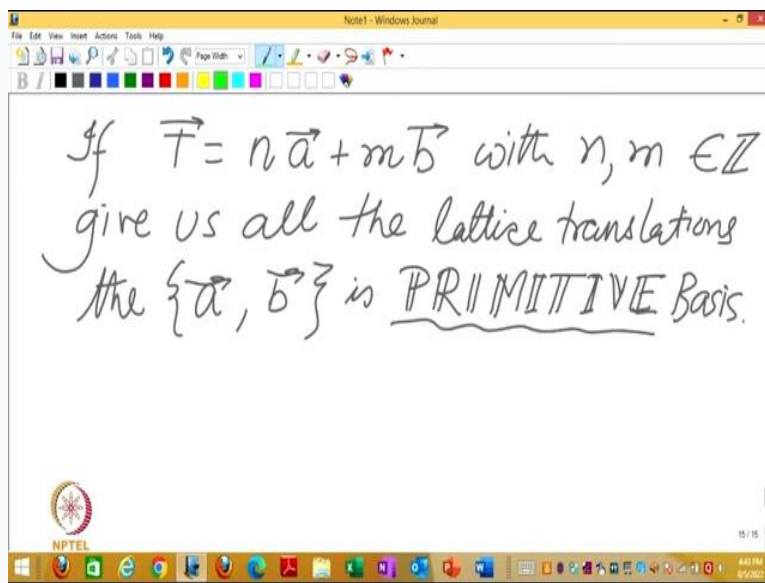 Note1 - Windows Journal
File Edit View Insert Actions Tools Help
Page Width
B I
If T⃗ = n a⃗ + m b⃗ with n, m ∈ ℤ
give us all the lattice translations
the {a⃗, b⃗} is PRIMITIVE Basis.
NPTEL
15 / 15
4:43 PM
8/5/2022